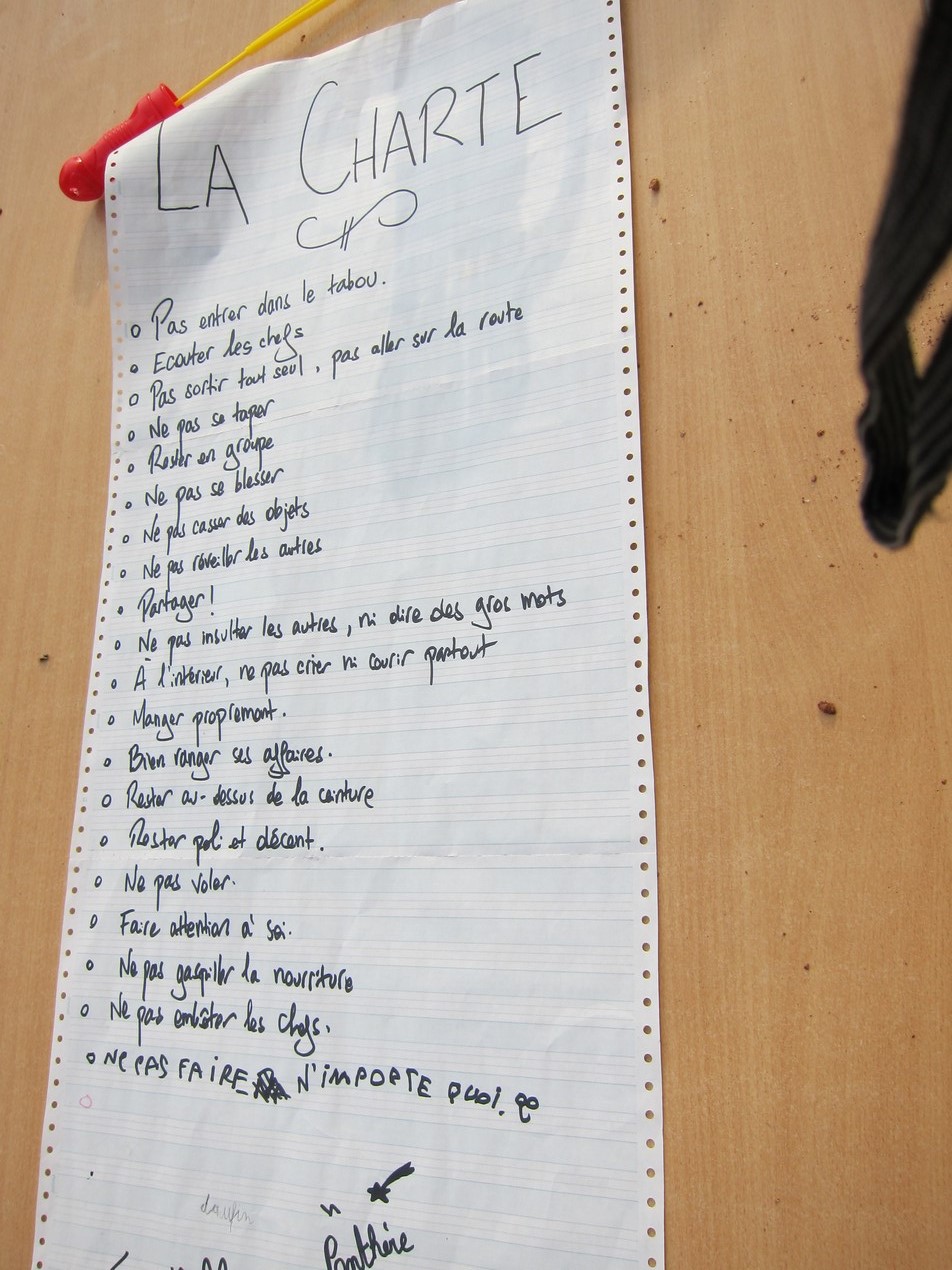 LA CHARTE
o Pas entrer dans le tabou.
o Ecouter les chefs
o Pas sortir tout seul, pas aller sur la route
o Ne pas se taper
o Rester en groupe
o Ne pas se blesser
o Ne pas casser des objets
o Ne pas réveiller les autres
o Partager !
o Ne pas insulter les autres, ni dire des gros mots
o À l'intérieur, ne pas crier ni courir partout
o Manger proprement.
o Bien ranger ses affaires.
o Rester au-dessus de la ceinture
o Rester poli et décent.
o Ne pas voler.
o Faire attention à soi.
o Ne pas gaspiller la nourriture
o Ne pas embêter les chefs.
o NE PAS FAIRE N'IMPORTE QUOI.
daufin
Panthère